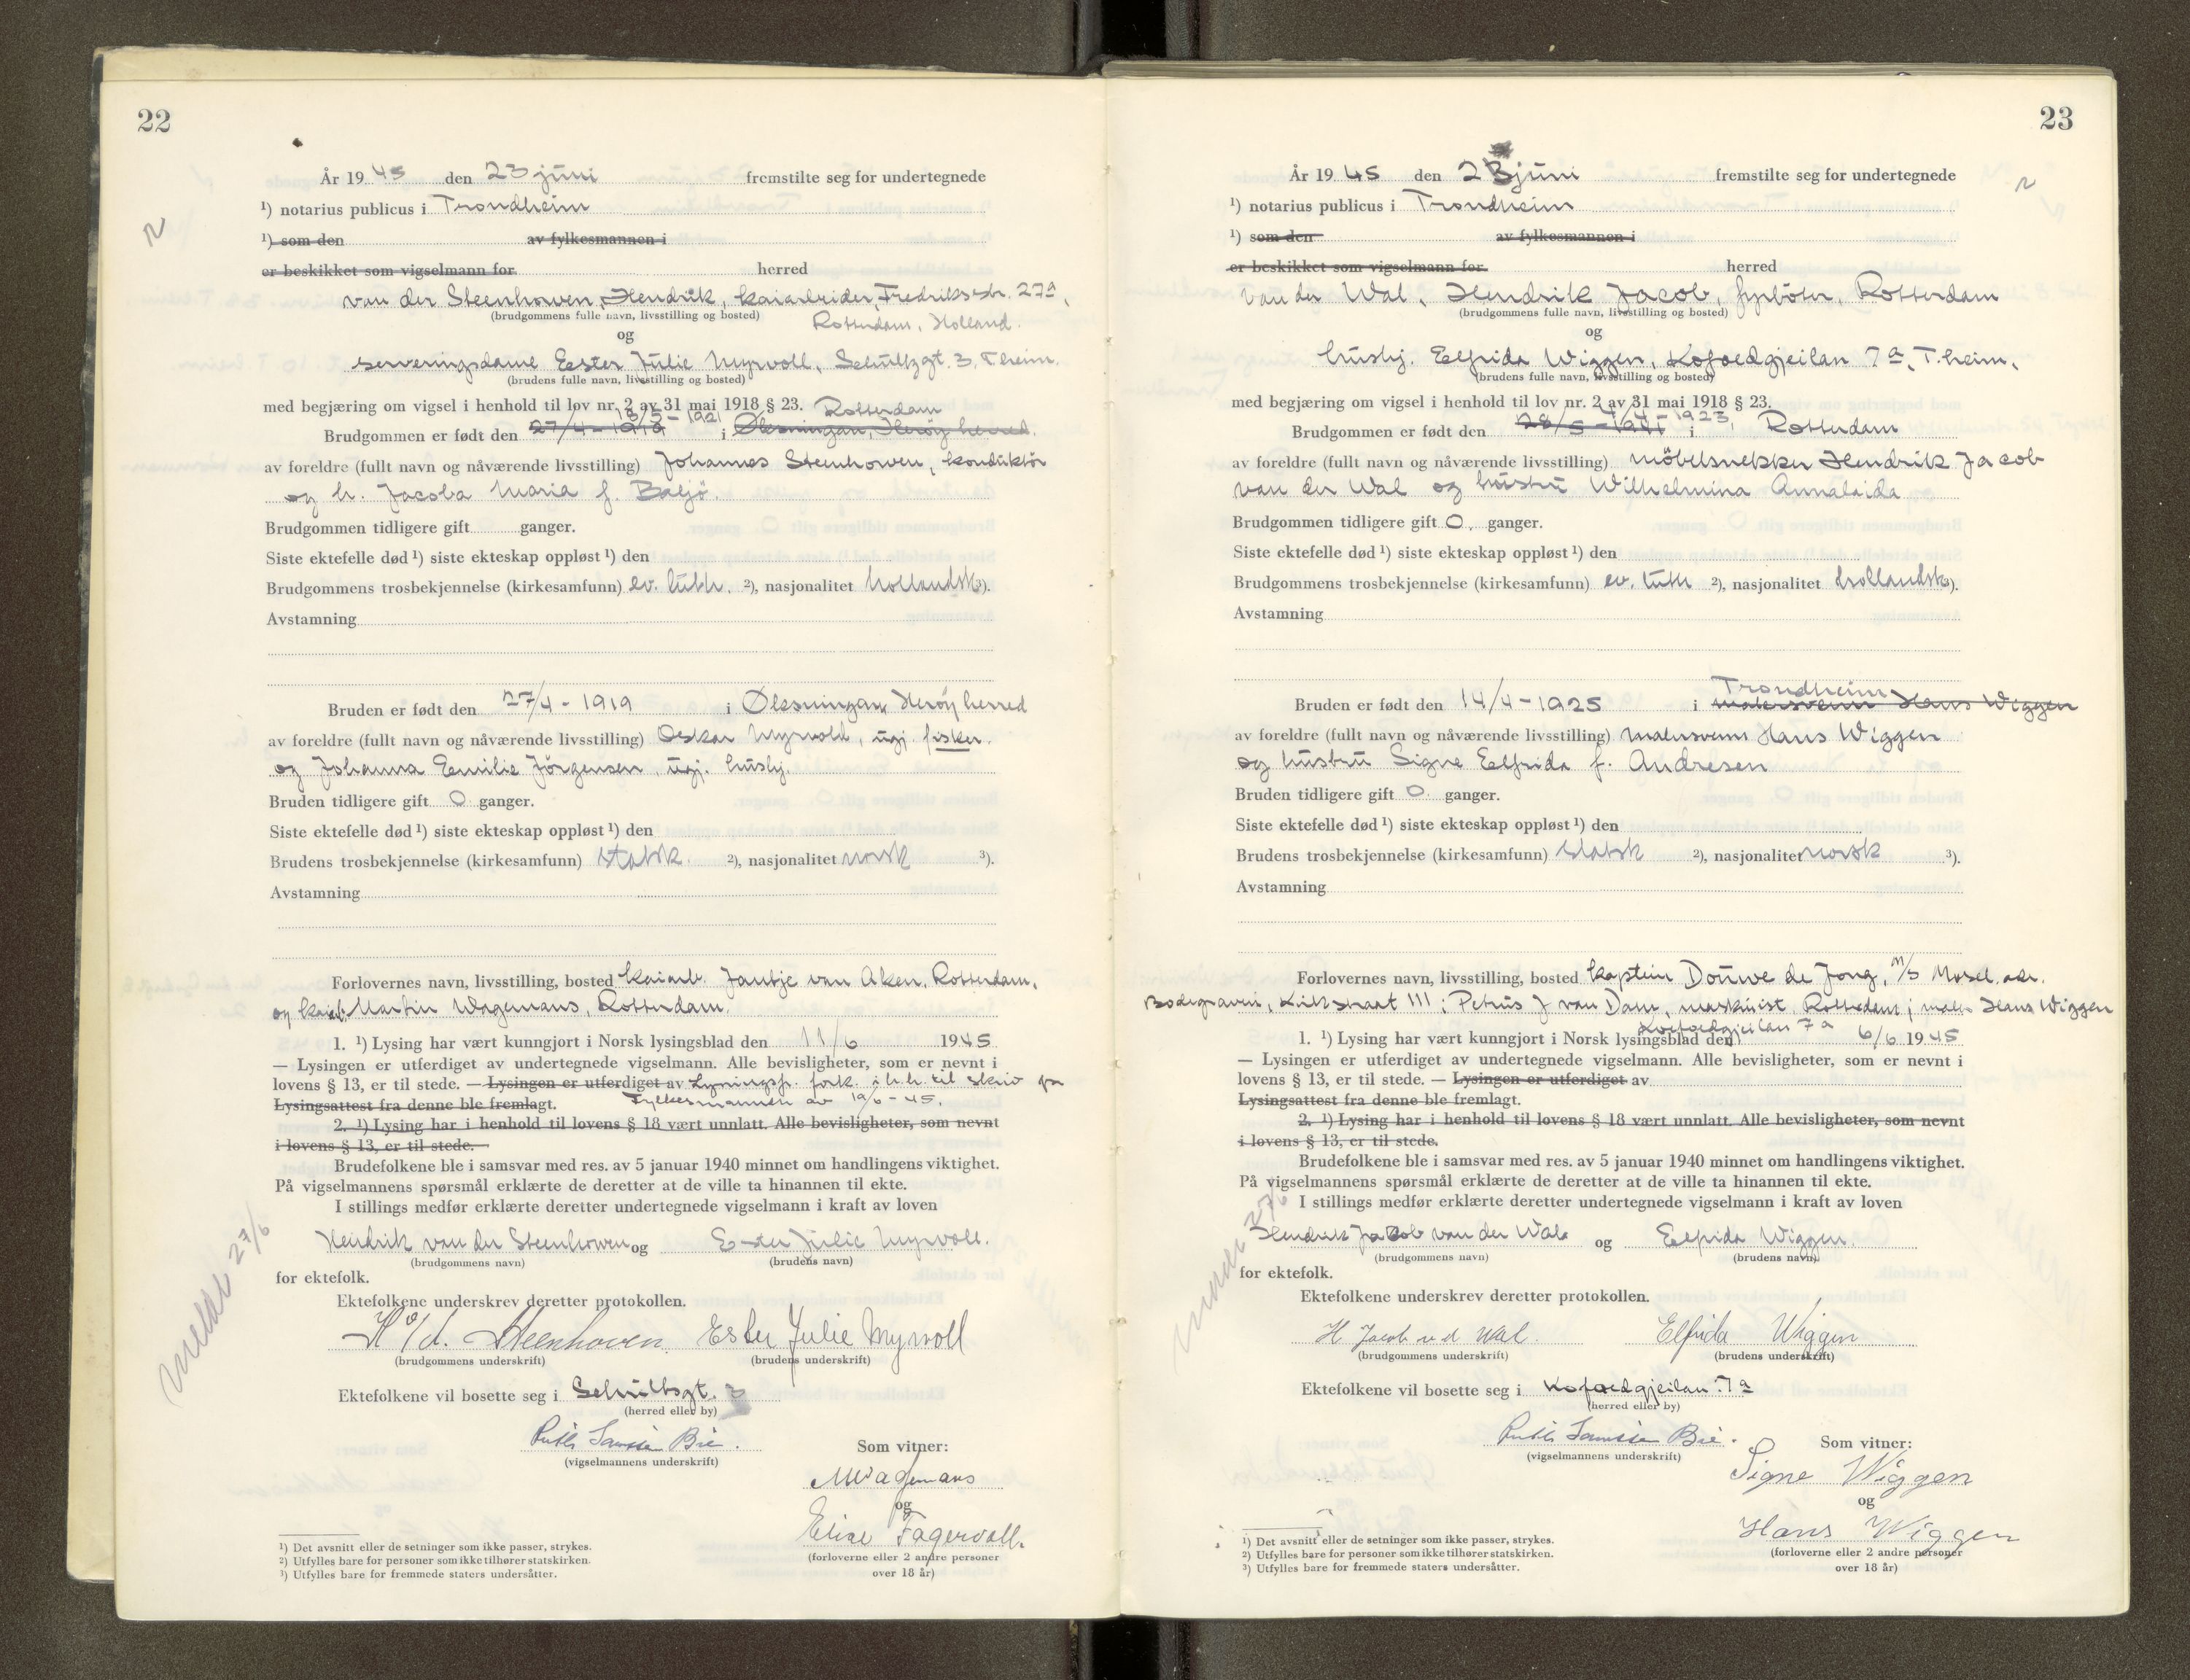 22
År 19 45 den 23 juni fremstilte seg for undertegnede
¹) notarius publicus i Trondheim
¹) som den av fylkesmannen i
er beskikket som vigselmann for herred
van der Steenhowen, Hendrik, kaiarbeider, Fredriksstr. 27a,
(brudgommens fulle navn, livsstilling og bosted) Rotterdam, Holland.
og
serveringsdame Ester Julie Myrvoll, Schultzgt. 3, T.heim.
(brudens fulle navn, livsstilling og bosted)
med begjæring om vigsel i henhold til lov nr. 2 av 31 mai 1918 § 23. Rotterdam
Brudgommen er født den 27/4 - 1919 - 1921 i Øksningan, Herøy herred.
av foreldre (fullt navn og nåværende livsstilling) Johannes Steenhowen, konduktør
og h. Jacoba Maria f. Baljö.
Brudgommen tidligere gift ganger.
Siste ektefelle død ¹) siste ekteskap oppløst ¹) den
Brudgommens trosbekjennelse (kirkesamfunn) ev. luth. ²), nasjonalitet hollandsk ³).
Avstamning
Bruden er født den 27/4 - 1919 i Øksningan, Herøy herred
av foreldre (fullt navn og nåværende livsstilling) Oskar Myrvold, ugj. fisker.
og Johanna Emilie Jörgensen, ugj. husbj.
Bruden tidligere gift 0 ganger.
Siste ektefelle død ¹) siste ekteskap oppløst ¹) den
Brudens trosbekjennelse (kirkesamfunn) statsk. ²), nasjonalitet norsk ³).
Avstamning
Forlovernes navn, livsstilling, bosted kaiarb. Jantje van Aken, Rotterdam,
og kaiarb. Martin Wagemans, Rotterdam.
1. ¹) Lysing har vært kunngjort i Norsk lysingsblad den 11/6 1945
— Lysingen er utferdiget av undertegnede vigselmann. Alle bevisligheter, som er nevnt i
lovens § 13, er til stede. — Lysingen er utferdiget av Lysningsfr. fork. i h.h. til skriv fra
Lysingsattest fra denne ble fremlagt. Fylkesmannen av 19/6 - 45.
2. ¹) Lysing har i henhold til lovens § 18 vært unnlatt. Alle bevisligheter, som nevnt
i lovens § 13, er til stede.
Brudefolkene ble i samsvar med res. av 5 januar 1940 minnet om handlingens viktighet.
På vigselmannens spørsmål erklærte de deretter at de ville ta hinannen til ekte.
I stillings medfør erklærte deretter undertegnede vigselmann i kraft av loven
Hendrik van der Steenhowen og Ester Julie Myrvoll.
(brudgommens navn) (brudens navn)
for ektefolk.
Ektefolkene underskrev deretter protokollen.
H v/d. Steenhoven Ester Julie Myrvoll
(brudgommens underskrift) (brudens underskrift)
Ektefolkene vil bosette seg i Schultsgt. 3
(herred eller by)
(vigselmannens underskrift) Som vitner:
MWagemans
og
Elise Fagervoll.
(forloverne eller 2 andre personer
over 18 år)
¹) Det avsnitt eller de setninger som ikke passer, strykes.
²) Utfylles bare for personer som ikke tilhører statskirken.
³) Utfylles bare for fremmede staters undersåtter.
Meldt 27/6
23
År 19 45 den 23 juni fremstilte seg for undertegnede
¹) notarius publicus i Trondheim
¹) som den av fylkesmannen i
er beskikket som vigselmann for herred
van der Wal, Hendrik Jacob, fyrbøter, Rotterdam
(brudgommens fulle navn, livsstilling og bosted)
og
husbj. Elfrida Wiggen, Kofoedgjeilan 7a, T.heim,
(brudens fulle navn, livsstilling og bosted)
med begjæring om vigsel i henhold til lov nr. 2 av 31 mai 1918 § 23.
Brudgommen er født den 4/4 - 1923, i Rotterdam
av foreldre (fullt navn og nåværende livsstilling) möbelsnekker Hendrik Jacob
van der Wal og hustru Wilhelmina Annalaida
Brudgommen tidligere gift 0. ganger.
Siste ektefelle død ¹) siste ekteskap oppløst ¹) den
Brudgommens trosbekjennelse (kirkesamfunn) ev. luth ²), nasjonalitet hollandsk ³).
Avstamning
Trondheim
Bruden er født den 14/4 - 1925 i malersvenn Hans Wiggen
av foreldre (fullt navn og nåværende livsstilling) malersvenn Hans Wiggen
og hustru Signe Elfrida f. Andresen
Bruden tidligere gift 0. ganger.
Siste ektefelle død ¹) siste ekteskap oppløst ¹) den
Brudens trosbekjennelse (kirkesamfunn) statsk ²), nasjonalitet norsk ³).
Avstamning
Forlovernes navn, livsstilling, bosted kaptein Douwe de Jong, M/S Mosel, adr.
Bodegraven, Kirkstraat 111; Petrus J van Dam, maskinist, Rotterdam; maler Hans Wiggen
Kofoedgjeilan 7a
1. ¹) Lysing har vært kunngjort i Norsk lysingsblad den 6/6 1945
— Lysingen er utferdiget av undertegnede vigselmann. Alle bevisligheter, som er nevnt i
lovens § 13, er til stede. — Lysingen er utferdiget av
Lysingsattest fra denne ble fremlagt.
2. ¹) Lysing har i henhold til lovens § 18 vært unnlatt. Alle bevisligheter, som nevnt
i lovens § 13, er til stede.
Brudefolkene ble i samsvar med res. av 5 januar 1940 minnet om handlingens viktighet.
På vigselmannens spørsmål erklærte de deretter at de ville ta hinannen til ekte.
I stillings medfør erklærte deretter undertegnede vigselmann i kraft av loven
Hendrik Jacob van der Wal og Elfrida Wiggen.
(brudgommens navn) (brudens navn)
for ektefolk.
Ektefolkene underskrev deretter protokollen.
H Jacob v d Wal. Elfrida Wiggen
(brudgommens underskrift) (brudens underskrift)
Ektefolkene vil bosette seg i Kofoedgjeilan 7a
(herred eller by)
(vigselmannens underskrift) Som vitner:
Signe Wiggen
og
Hans Wiggen
(forloverne eller 2 andre personer
over 18 år)
¹) Det avsnitt eller de setninger som ikke passer, strykes.
²) Utfylles bare for personer som ikke tilhører statskirken.
³) Utfylles bare for fremmede staters undersåtter.
Meldt 27/6